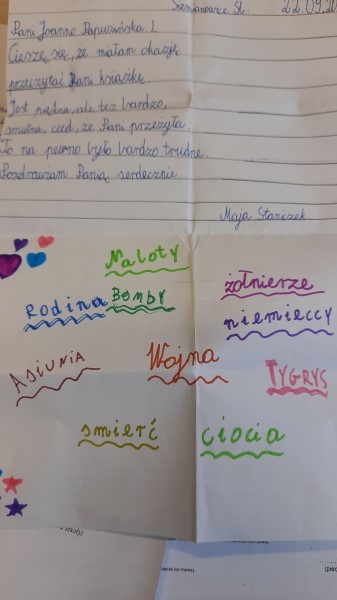 Siemianowice Śl 22.09.20
Pani Joanno Papuzińska!
Cieszę się, że miałam okazję
przeczytać Pani książkę.
Jest piękna, ale też bardzo,
smutna, cud, że Pani przeżyła.
To na pewno było bardzo trudne.
Pozdrawiam Panią serdecznie.
Maja Staniczek
Naloty
żołnierze
Rodina Bomby
niemieccy
Asiunia
Wojna
TYGRYS
śmierć
ciocia